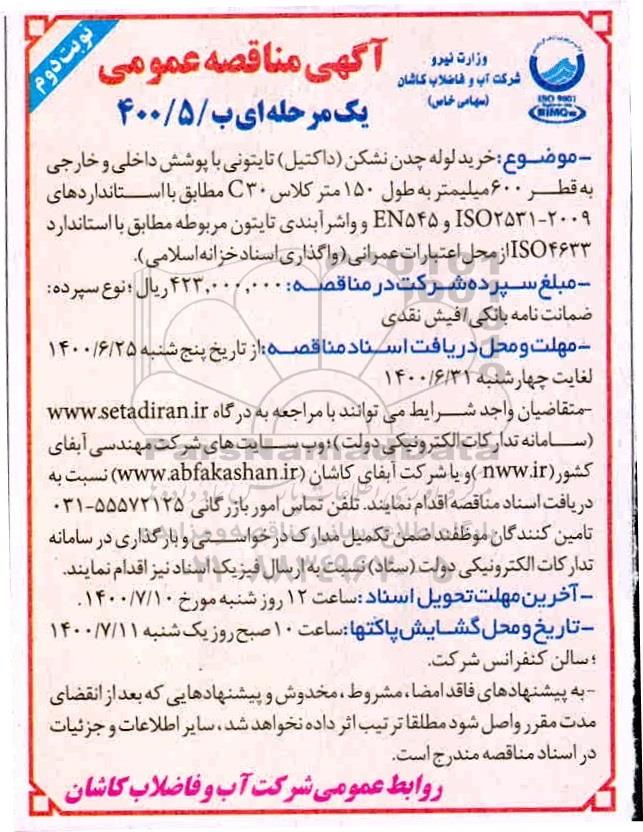 نوبت دوم
وزارت نیرو
شرکت آب و فاضلاب کاشان
(سهامی خاص)
ISO 9001
BIMQ
آگهی مناقصه عمومی
یک مرحله ای ب/۴۰۰/۵
-موضوع: خرید لوله چدن نشکن (داکتیل) تایتونی با پوشش داخلی و خارجی
به قطر ۶۰۰ میلیمتر به طول ۱۵۰ متر کلاس C۳۰ مطابق با استانداردهای
ISO۲۵۳۱-۲۰۰۹ و EN۵۴۵ و واشر آبندی تایتون مربوطه مطابق با استاندارد
ISO۴۶۳۳ از محل اعتبارات عمرانی (واگذاری اسناد خزانه اسلامی).
-مبلغ سپرده شرکت در مناقصه: ۴۲۳,۰۰۰,۰۰۰ ریال؛ نوع سپرده:
ضمانت نامه بانکی/فیش نقدی
-مهلت و محل دریافت اسناد مناقصه: از تاریخ پنج شنبه ۱۴۰۰/۶/۲۵
لغایت چهارشنبه ۱۴۰۰/۶/۳۱
-متقاضیان واجد شرایط می توانند با مراجعه به درگاه www.setadiran.ir
(سامانه تدارکات الکترونیکی دولت)؛ وب سایت های شرکت مهندسی آبفای
کشور(nww.ir) و یا شرکت آبفای کاشان (www.abfakashan.ir) نسبت به
دریافت اسناد مناقصه اقدام نمایند. تلفن تماس امور بازرگانی ۵۵۵۷۲۱۲۵-۰۳۱
تامین کنندگان موظفند ضمن تکمیل مدارک درخواستی و بارگذاری در سامانه
تدارکات الکترونیکی دولت (ستاد) نسبت به ارسال فیزیک اسناد نیز اقدام نمایند.
-آخرین مهلت تحویل اسناد: ساعت ۱۲ روز شنبه مورخ ۱۴۰۰/۷/۱۰.
-تاریخ و محل گشایش پاکتها: ساعت ۱۰ صبح روز یک شنبه ۱۴۰۰/۷/۱۱
؛ سالن کنفرانس شرکت.
-به پیشنهادهای فاقد امضا، مشروط، مخدوش و پیشنهادهایی که بعد از انقضای
مدت مقرر واصل شود مطلقا ترتیب اثر داده نخواهد شد، سایر اطلاعات و جزئیات
در اسناد مناقصه مندرج است.
روابط عمومی شرکت آب و فاضلاب کاشان